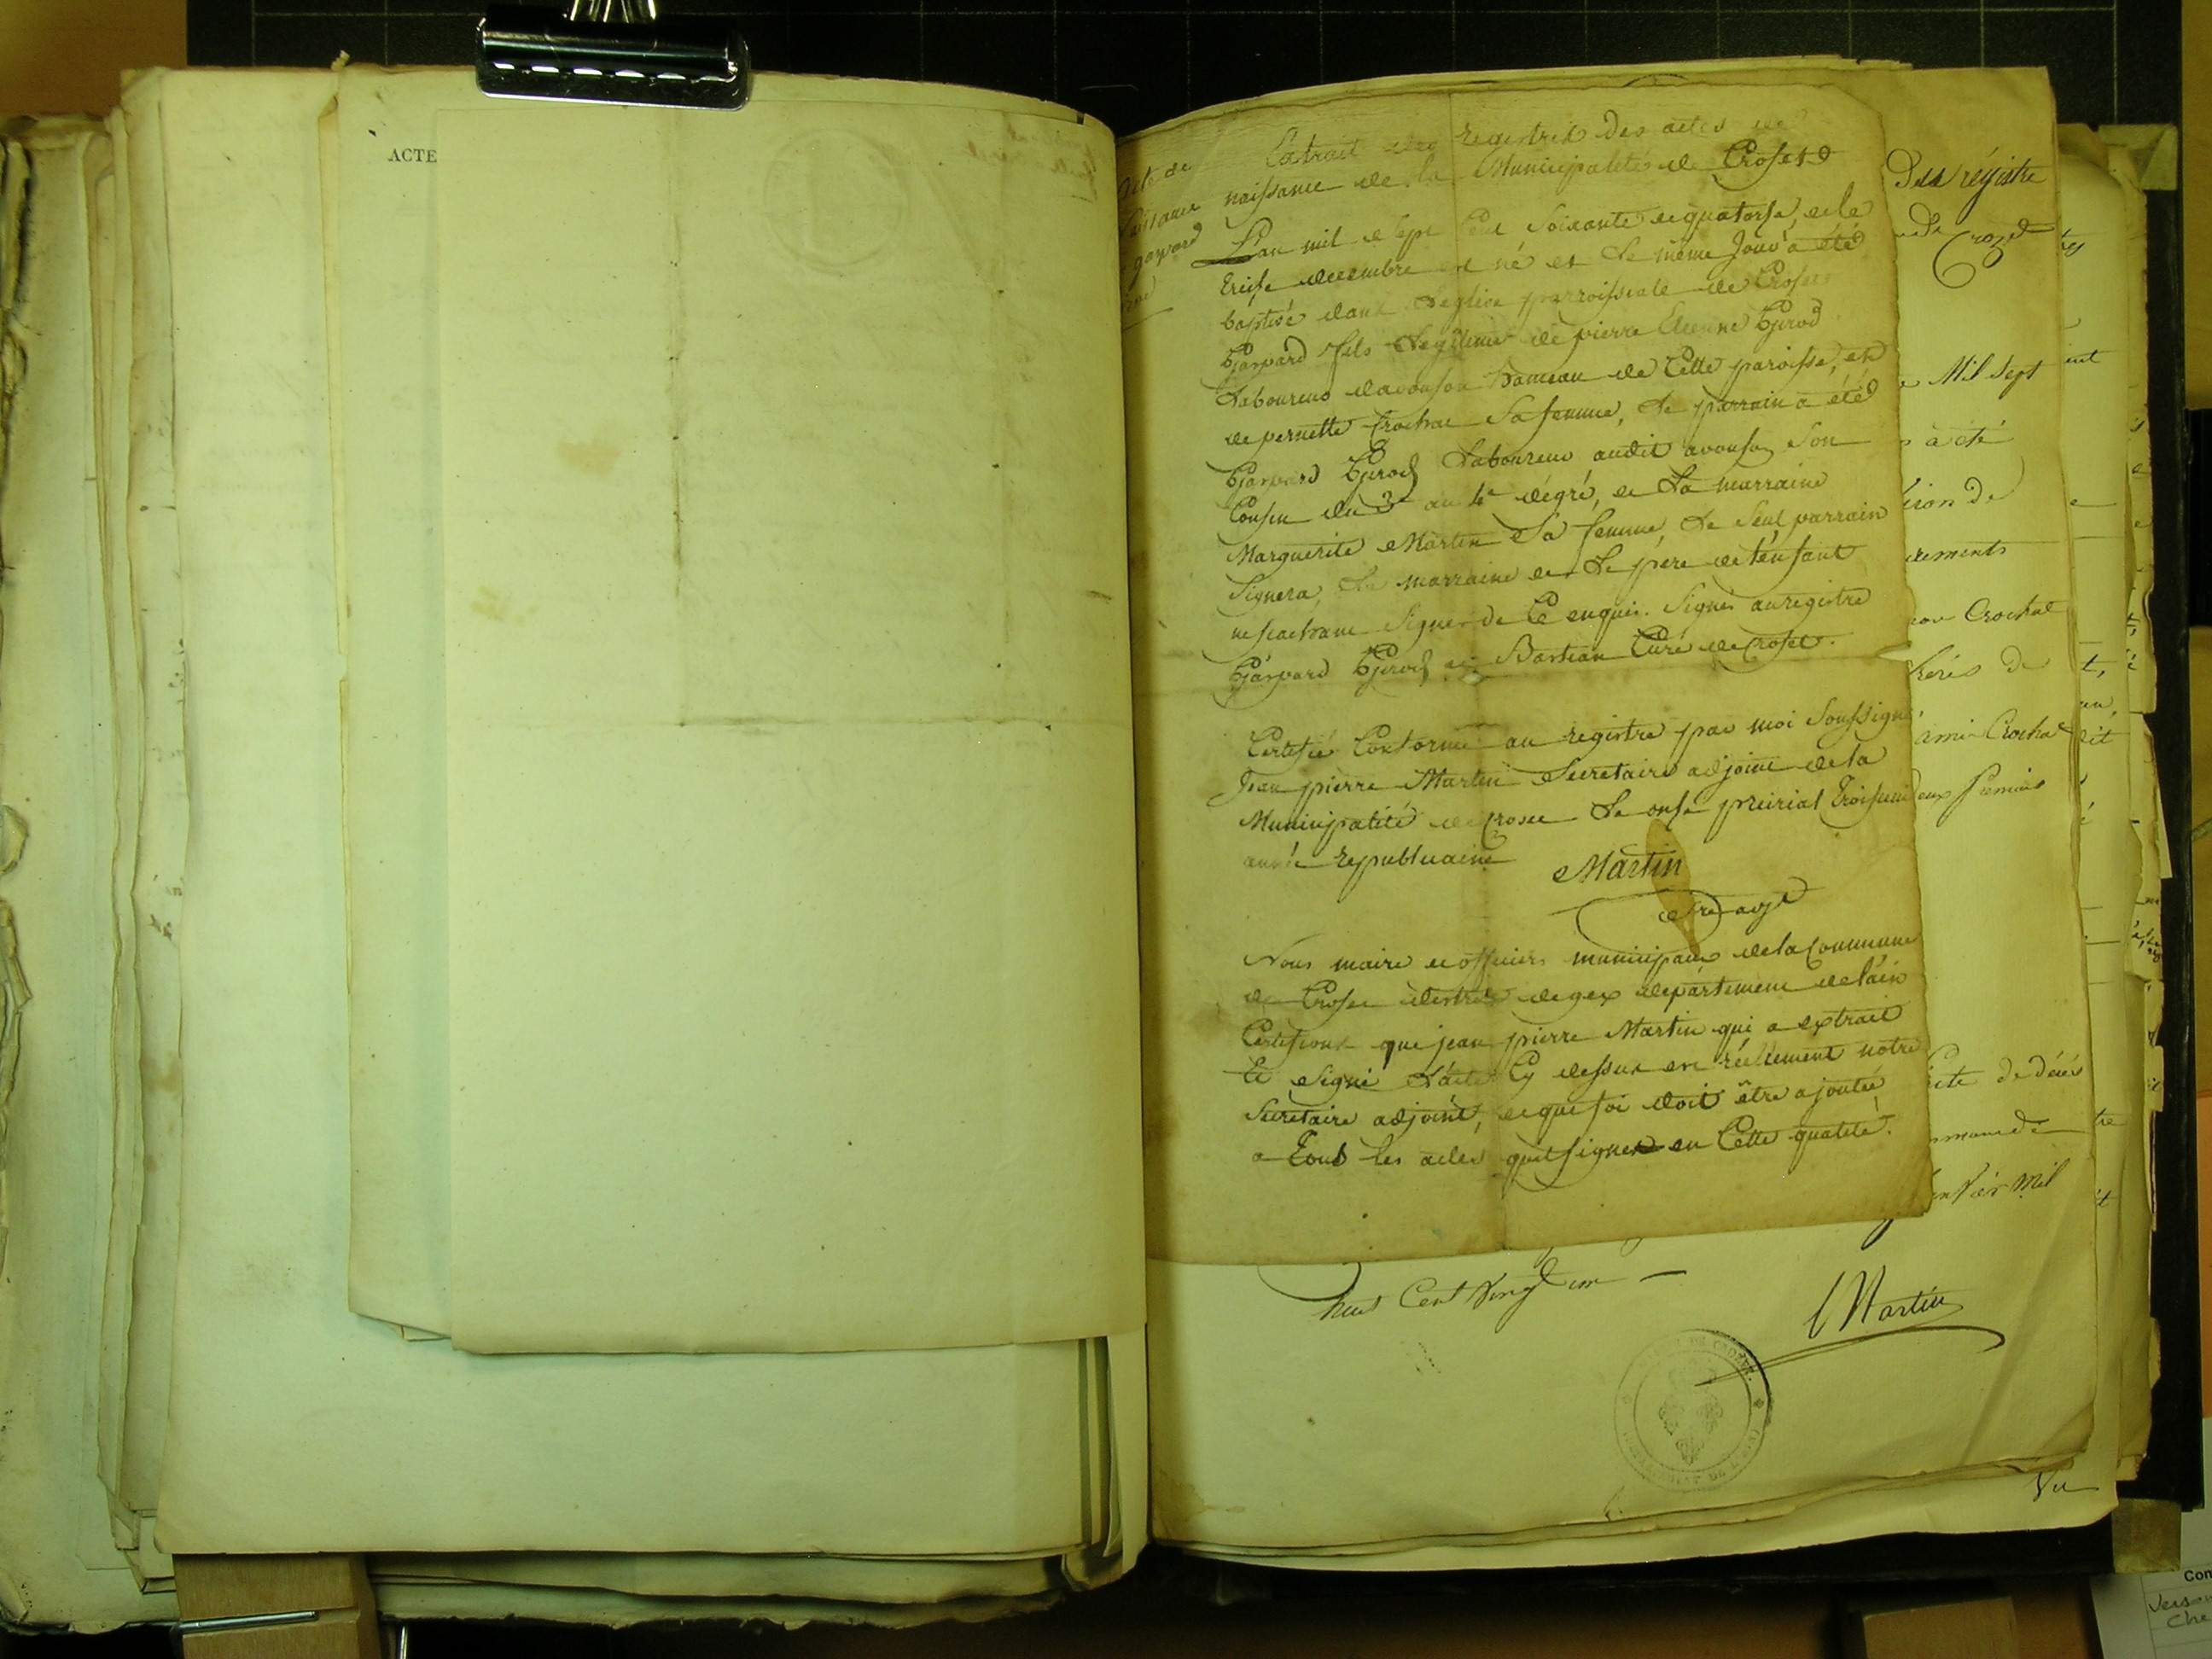 ACTE
acte de
naissance
gaspard
Extrait des registres des actes de
naissance de la Municipalité de Croset
L'an mil sept Cent Soixante et quatorse, et le
treise decembre est né et le même Jour a été
baptisé dans L'eglise parroissiale de Croset
Gjaspard fils Legitime de pierre Etienne Gjirod
Laboureur d'avouson hameau de Cette paroisse, et
de pernette Crochat Sa femme, Le parrain a été
Gjaspard Gjirod Laboureur audit avouson Son
Cousin du 3e au 4e dégré, et La marraine
Marguerite Martin Sa femme, Le Seul parrain
Signera, La marraine et Le pere de l'enfant
ne sachant Signer de Ce enquis. Signés au registre
Gjaspard Gjirod et Bastian Curé de Croset.
Certifié Conforme au registre par moi Soussigné,
Jean pierre Martin Secretaire adjoint de la
Municipalité de Croset Le onse preirial Troisieme
année republicaine
Martin
Nous maire et officiers municipaux de la Commune
de Croset district de gex département de l'ain
Certifions que jean pierre Martin qui a extrait
Et Signé L'acte Cy dessus est réellement notre
Secretaire adjoint, et que foi doit être ajoutée
a Tous les actes qu'il signe en Cette qualité.
Des régistre
Crozet
Mil Sept
à été
Crochat
de
Crochat
de décés
Mil
huit Cent Vingt un
Martin
DE CROZET
DE L'AIN
Vu